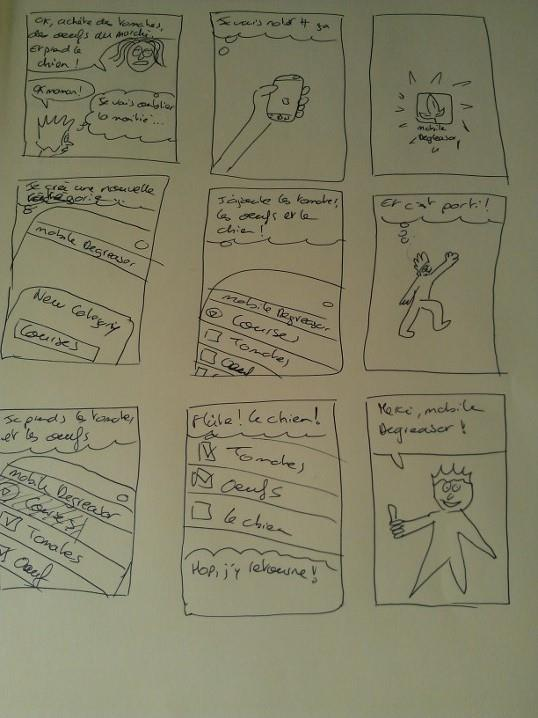 OK, achète des tomates,
des oeufs au marché
et prend le
chien !
OK maman !
Je vais oublier
la moitié...
Je vais noter ça
mobile
Degreaser
Je crée une nouvelle
catégorie
mobile Degreaser
New Category
Courses
J'ajoute les tomates,
les oeufs et le
chien !
mobile Degreaser
Courses
Tomates
Oeuf
Et c'est parti !
Je prends les tomates
et les oeufs
mobile Degreaser
Courses
Tomates
Oeuf
Flûte ! le chien !
Tomates
Oeufs
le chien
Hop, j'y retourne !
Merci, mobile
Degreaser !